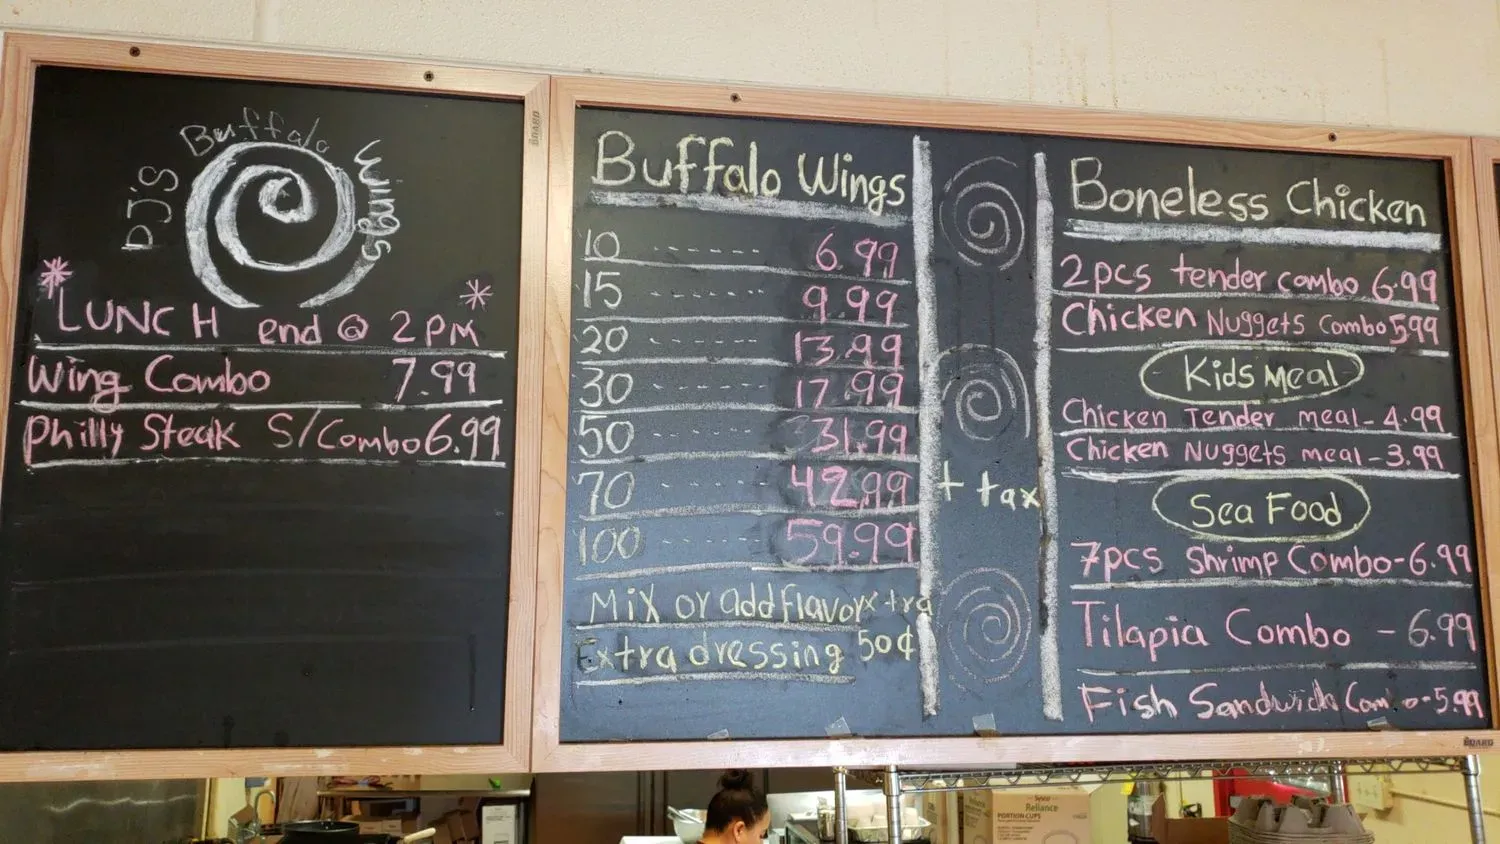 PJ's Buffalo Wings
* LUNCH end @ 2PM *
Wing Combo 7.99
Philly Steak S/Combo 6.99
BOARD
Buffalo Wings
10 ------- 6.99
15 ------- 9.99
20 ------- 13.99
30 ------- 17.99
50 ------- 31.99
70 ------- 42.99
100 ------- 59.99
Mix or add flavor xtra
Extra dressing 50¢
+ tax
Boneless Chicken
2pcs tender combo 6.99
Chicken Nuggets Combo 5.99
Kids Meal
Chicken Tender meal - 4.99
Chicken Nuggets meal - 3.99
Sea Food
7pcs Shrimp Combo - 6.99
Tilapia Combo - 6.99
Fish Sandwich Combo - 5.99
BOARD
Sysco
Reliance
PORTION CUPS